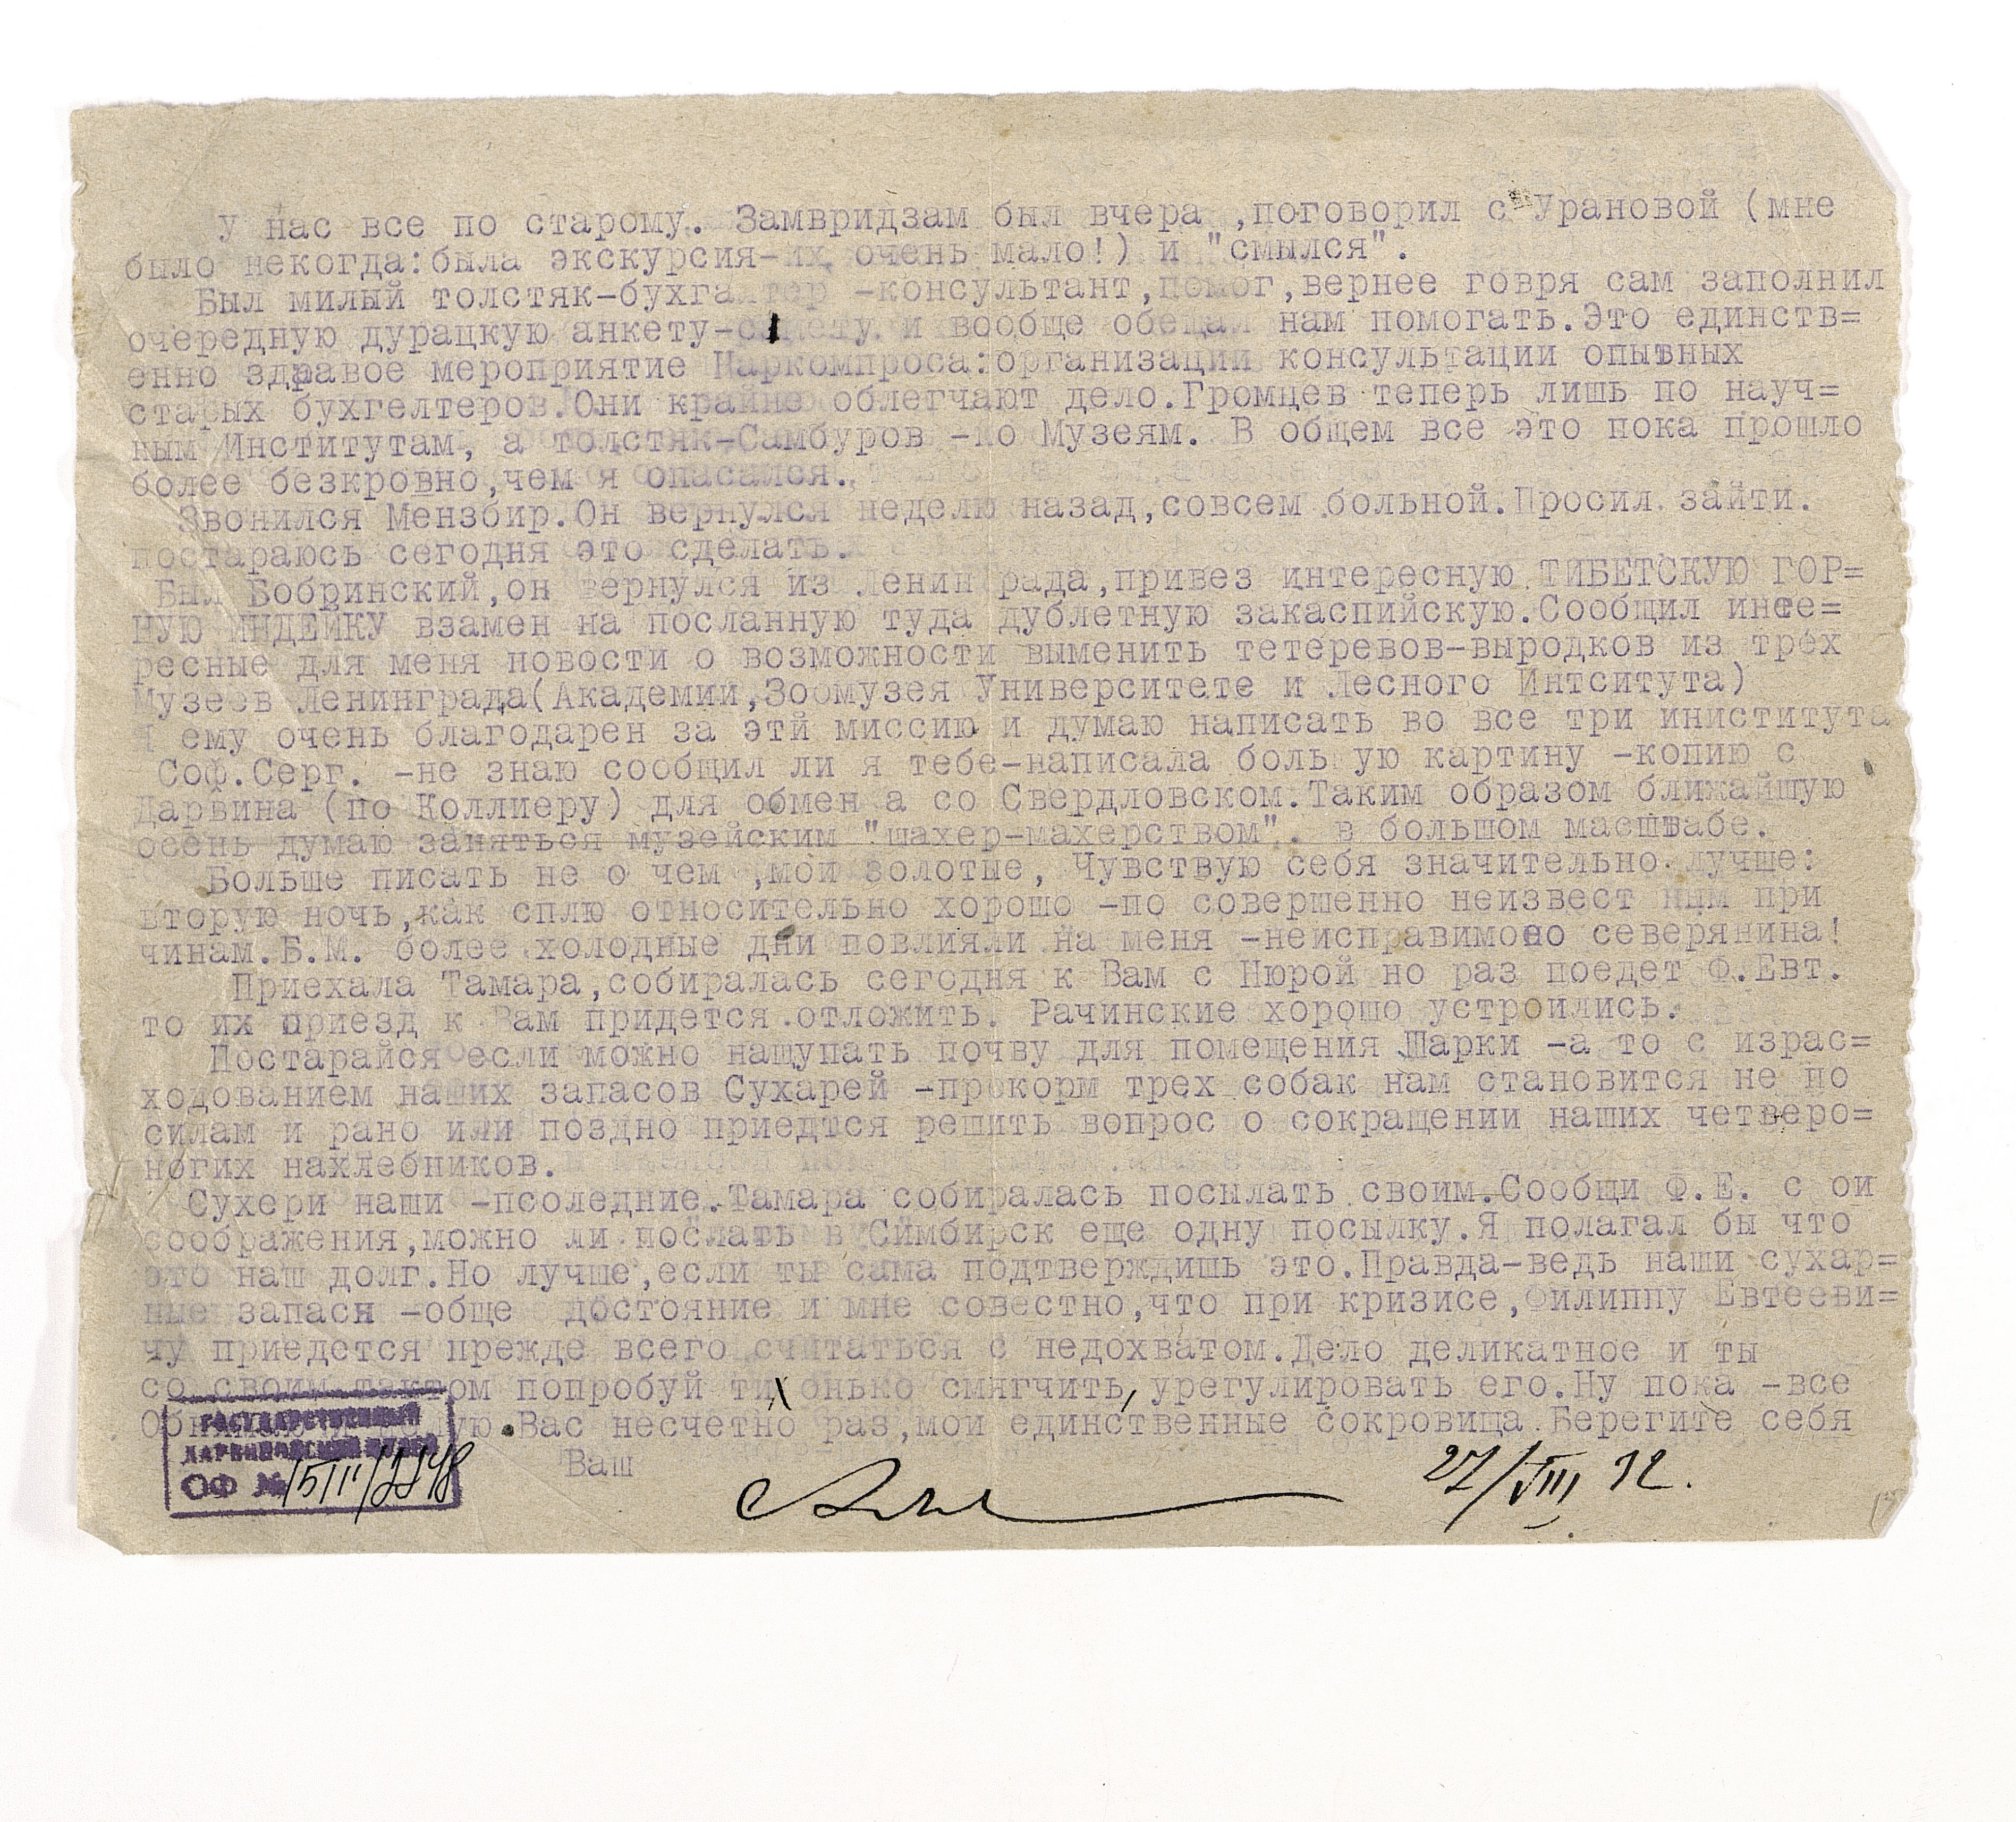 У нас все по старому. Замвридзам был вчера ,поговорил с Урановой (мне
было некогда:была экскурсия-их очень мало!) и "смылся".
Был милый толстяк-бухгалтер -консультант,помог,вернее говря сам заполнил
очередную дурацкую анкету- и вообще обещал нам помогать.Это единств=
енно здравое мероприятие Наркомпроса:организации консультации опытных
старых бухгелтеров.Они крайне облегчают дело.Громцев теперь лишь по науч=
ным Институтам, а толстяк-Самбуров -по Музеям. В общем все это пока прошло
более безкровно,чем я опасался.
Звонился Мензбир.Он вернулся неделю назад,совсем больной.Просил зайти.
постараюсь сегодня это сделать.
Был Бобринский,он вернулся из Ленин рада,привез интересную ТИБЕТСКУЮ ГОР=
НУЮ ИНДЕЙКУ взамен на посланную туда дублетную закаспийскую.Сообщил инте=
ресные для меня новости о возможности выменить тетеревов-выродков из трех
Музеев Ленинграда(Академии,Зоомузея Университете и Лесного Интситута)
Я ему очень благодарен за этй миссию и думаю написать во все три иниститута
Соф.Серг. -не знаю сообщил ли я тебе-написала боль ую картину -копию с
Дарвина (по Коллиеру) для обмен а со Свердловском.Таким образом ближайшую
осень думаю заняться музейским "шахер-махерством". в большом масштабе.
Больше писать не о чем ,мои золотые, Чувствую себя значительно лучше:
вторую ночь,как сплю относительно хорошо -по совершенно неизвест ным при
чинам.Б.М. более холодные дни повлияли на меня -неисправимого северянина!
Приехала Тамара,собиралась сегодня к Вам с Нюрой но раз поедет Ф.Евт.
то их приезд к Вам придется отложить. Рачинские хорошо устроились.
Постарайся если можно нащупать почву для помещения Шарки -а то с израс=
ходованием наших запасов Сухарей -прокорм трех собак нам становится не по
силам и рано или поздно приедтся решить вопрос о сокращении наших четверо=
ногих нахлебников.
Сухери наши -псоледние.Тамара собиралась посылать своим.Сообщи Ф.Е. с ои
соображения,можно ли послать в Симбирск еще одну посылку.Я полагал бы что
это наш долг.Но лучше,если ты сама подтверждишь это.Правда-ведь наши сухар=
ные запасы -обще достояние и мне совестно,что при кризисе,Филиппу Евтееви=
чу приедется прежде всего считаться с недохватом.Дело деликатное и ты
со своим тактом попробуй тихонько смягчить,урегулировать его.Ну пока -все
Вас несчетно раз,мои единственные сокровища.Берегите себя
Ваш
27/VIII 32.
ГОСУДАРСТВЕННЫЙ
ДАРВИНОВСКИЙ МУЗЕЙ
ОФ №